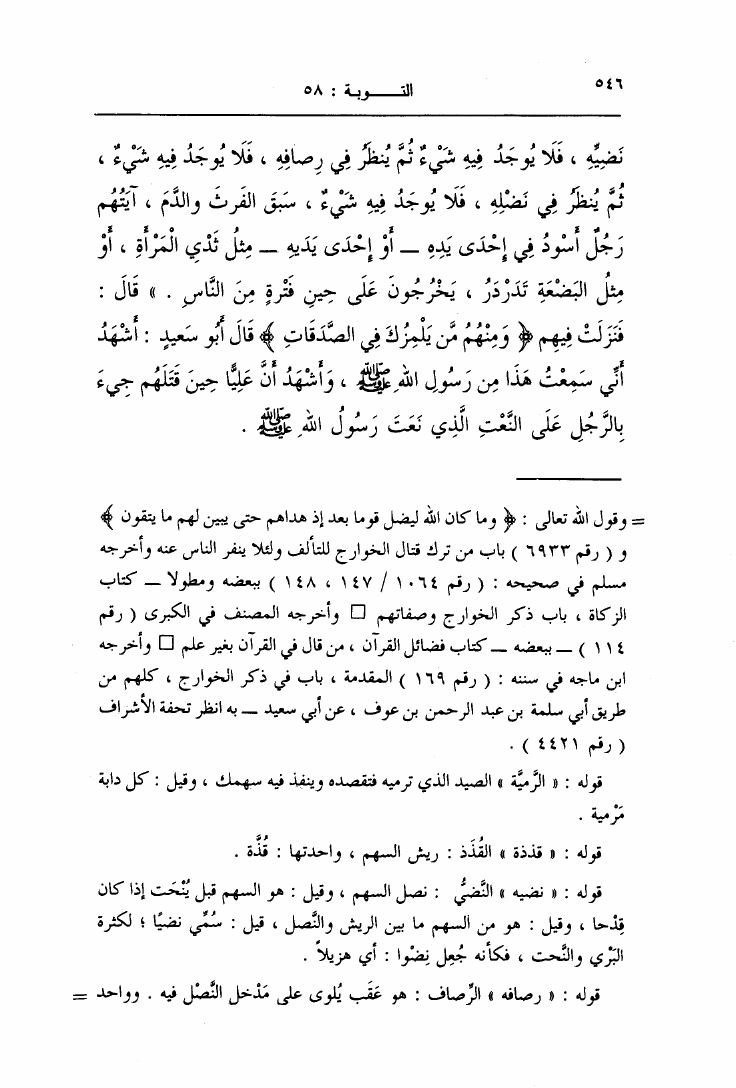 ٥٤٦
التـــــوبـة : ٥٨
نَضِيِّهِ ، فَلَا يُوجَدُ فِيهِ شَيْءٌ ثُمَّ يُنظَرُ فِي رِصافِهِ ، فَلَا يُوجَدُ فِيهِ شَيْءٌ ،
ثُمَّ يُنظَرُ فِي نَصْلِهِ ، فَلَا يُوجَدُ فِيهِ شَيْءٌ ، سَبَقَ الفَرثَ والدَّمَ ، آيَتُهُم
رَجُلٌ أَسْوَدُ فِي إِحْدَى يَدِهِ ــ أَوْ إِحْدَى يَدَيهِ ــ مِثْلُ ثَدْيِ الْمَرْأَةِ ، أَوْ
مِثلُ البَضْعَةِ تَدَرْدَرُ ، يَخْرُجُونَ عَلَى حِينِ فَتْرةٍ مِنَ النَّاسِ . » قَالَ :
فَنَزَلَتْ فِيهِم ﴿ وَمِنْهُمُ مَّن يَلْمِزُكَ فِي الصَّدَقَاتِ ﴾ قَالَ أَبُو سَعيدٍ : أَشْهَدُ
أَنِّي سَمِعْتُ هَذَا مِن رَسُولِ اللهِ ﷺ ، وَأَشْهَدُ أَنَّ عَلِيًّا حِينَ قَتَلَهُم جِيءَ
بِالرَّجُلِ عَلَى النَّعْتِ الَّذِي نَعَتَ رَسُولُ اللهِ ﷺ .
= وقول الله تعالى : ﴿ وما كان الله ليضل قوما بعد إذ هداهم حتى يبين لهم ما يتقون ﴾
و ( رقم ٦٩٣٣ ) باب من ترك قتال الخوارج للتألف ولئلا ينفر الناس عنه وأخرجه
مسلم في صحيحه : ( رقم ١٠٦٤ / ١٤٧ ، ١٤٨ ) ببعضه ومطولا ــ كتاب
الزكاة ، باب ذكر الخوارج وصفاتهم □ وأخرجه المصنف في الكبرى ( رقم
١١٤ ) ــ ببعضه ــ كتاب فضائل القرآن ، من قال في القرآن بغير علم □ وأخرجه
ابن ماجه في سننه : ( رقم ١٦٩ ) المقدمة ، باب في ذكر الخوارج ، كلهم من
طريق أبي سلمة بن عبد الرحمن بن عوف ، عن أبي سعيد ــ به انظر تحفة الأشراف
( رقم ٤٤٢١ ) .
قوله : « الرَّميَّة » الصيد الذي ترميه فتقصده وينفذ فيه سهمك ، وقيل : كل دابة
مَرْمية .
قوله : « قذذة » القُذَذ : ريش السهم ، واحدتها : قُذَّة .
قوله : « نضيه » النَّضيُّ : نصل السهم ، وقيل : هو السهم قبل يُنْحَت إذا كان
قِدْحا ، وقيل : هو من السهم ما بين الريش والنَّصل ، قيل : سُمِّي نضيًا ؛ لكثرة
البَرْي والنَّحت ، فكأنه جُعِل نِضْوا : أي هزيلاً .
قوله : « رصافه » الرِّصاف : هو عَقَب يُلوى على مَدْخل النَّصْل فيه . وواحد =